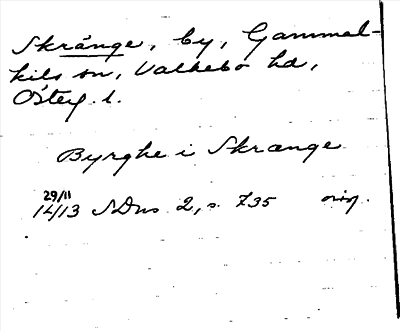 Skränge, by, Gammal-
kils sn, Valkebo hd,
Österg. l.
Byrghe i Skrænge
29/11
1413 SDns 2, s. 735 orig.